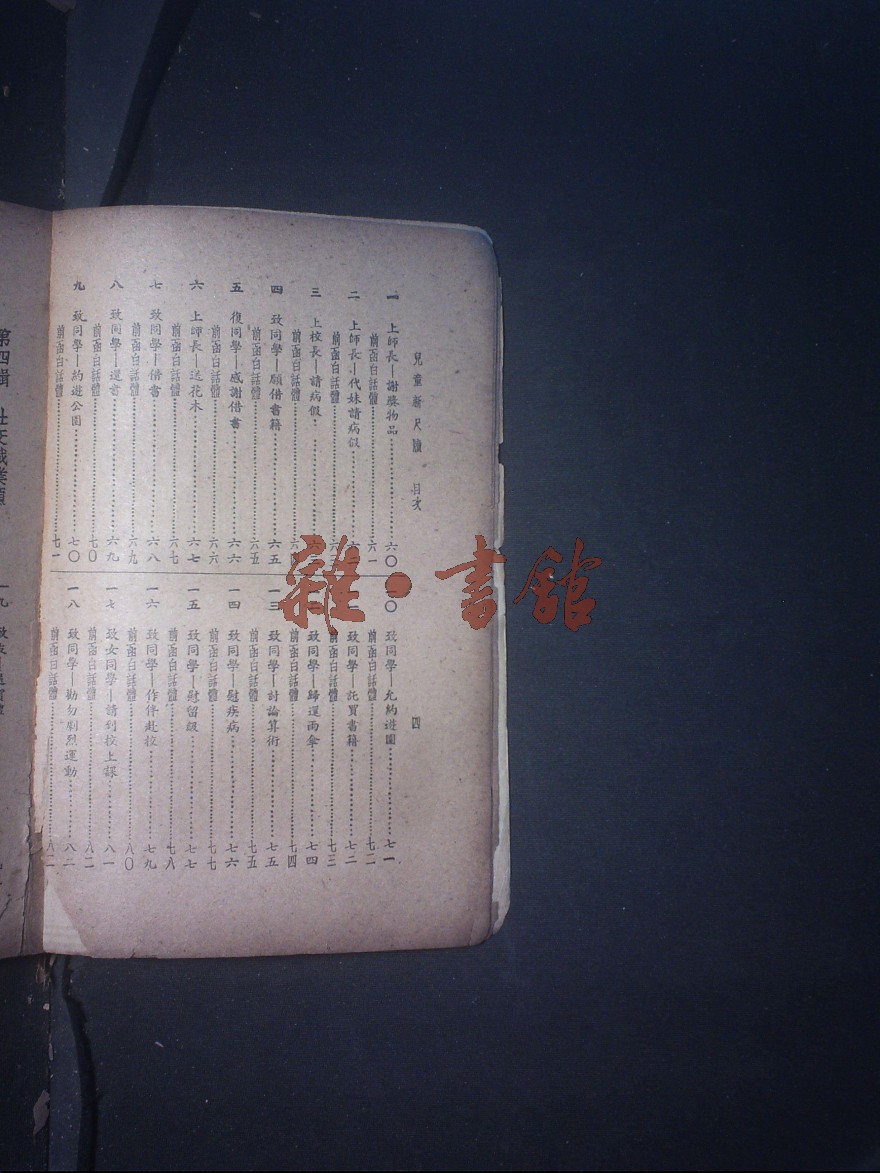 兒童新尺牘 目次 四
一 上師長—謝獎物品 六〇
前函白話體 六一
二 上師長—代妹請病假
前函白話體
三 上校長—請病假
前函白話體
四 致同學—願借書籍 六五
前函白話體 六五
五 復同學—感謝借書 六六
前函白話體 六六
六 上師長—送花木 六七
前函白話體 六七
七 致同學—借書 六八
前函白話體 六九
八 致同學—還書 六九
前函白話體 七〇
九 致同學—約遊公園 七〇
前函白話體 七一
〇 致同學—允約遊園 七一
前函白話體 七二
致同學—託買書籍 七二
前函白話體 七三
致同學—歸還雨傘 七四
前函白話體 七四
一三 致同學—討論算術 七五
前函白話體 七五
一四 致同學—慰疾病 七六
前函白話體 七七
一五 致同學—慰留級 七七
前函白話體 七八
一六 致同學—作伴赴校 七九
前函白話體 八〇
一七 致女同學—請到校上課 八一
前函白話體 八二
一八 致同學—勸勿劇烈運動 八二
前函白話體
第四輯
一九
雜·書館